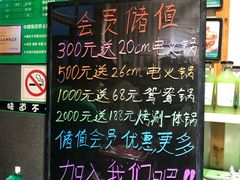 会员储值
300元送20cm电火锅
500元送26cm电火锅
1000元送68元鸳鸯锅
2000元送188元烤涮一体锅
储值会员优惠更多
加入我们吧!!
味道不